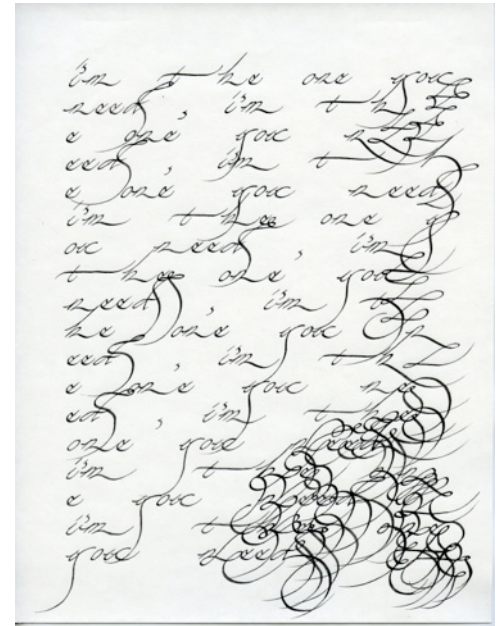 i'm the one you
need, i'm th
e one you n
eed, i'm th
e one you need
i'm the one y
ou need, i'm
the one you
need, i'm t
he one you n
eed, i'm th
e one you ne
ed, i'm the
one you need
i'm the on
e you need
i'm the one
you need